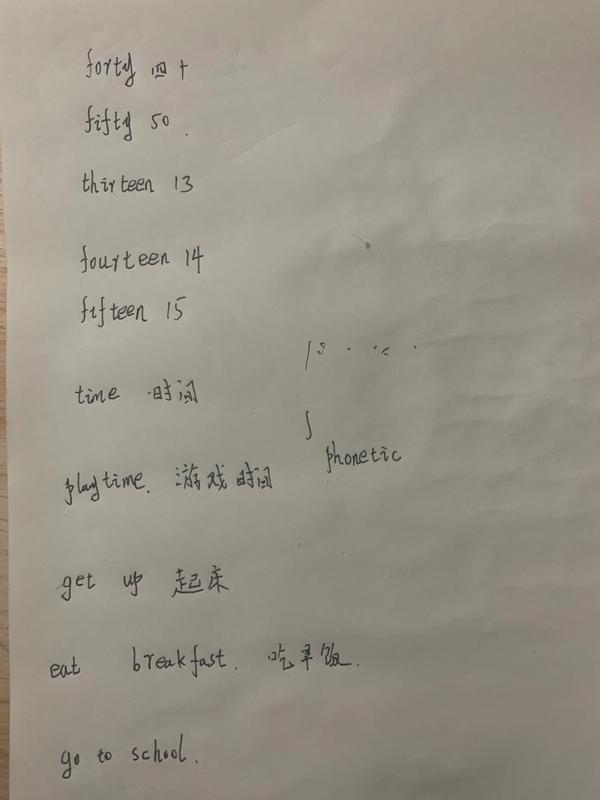 forty 四十
fifty 50.
thirteen 13
fourteen 14
fifteen 15
time 时间
phonetic
playtime. 游戏时间
get up 起床
eat breakfast. 吃早饭.
go to school.